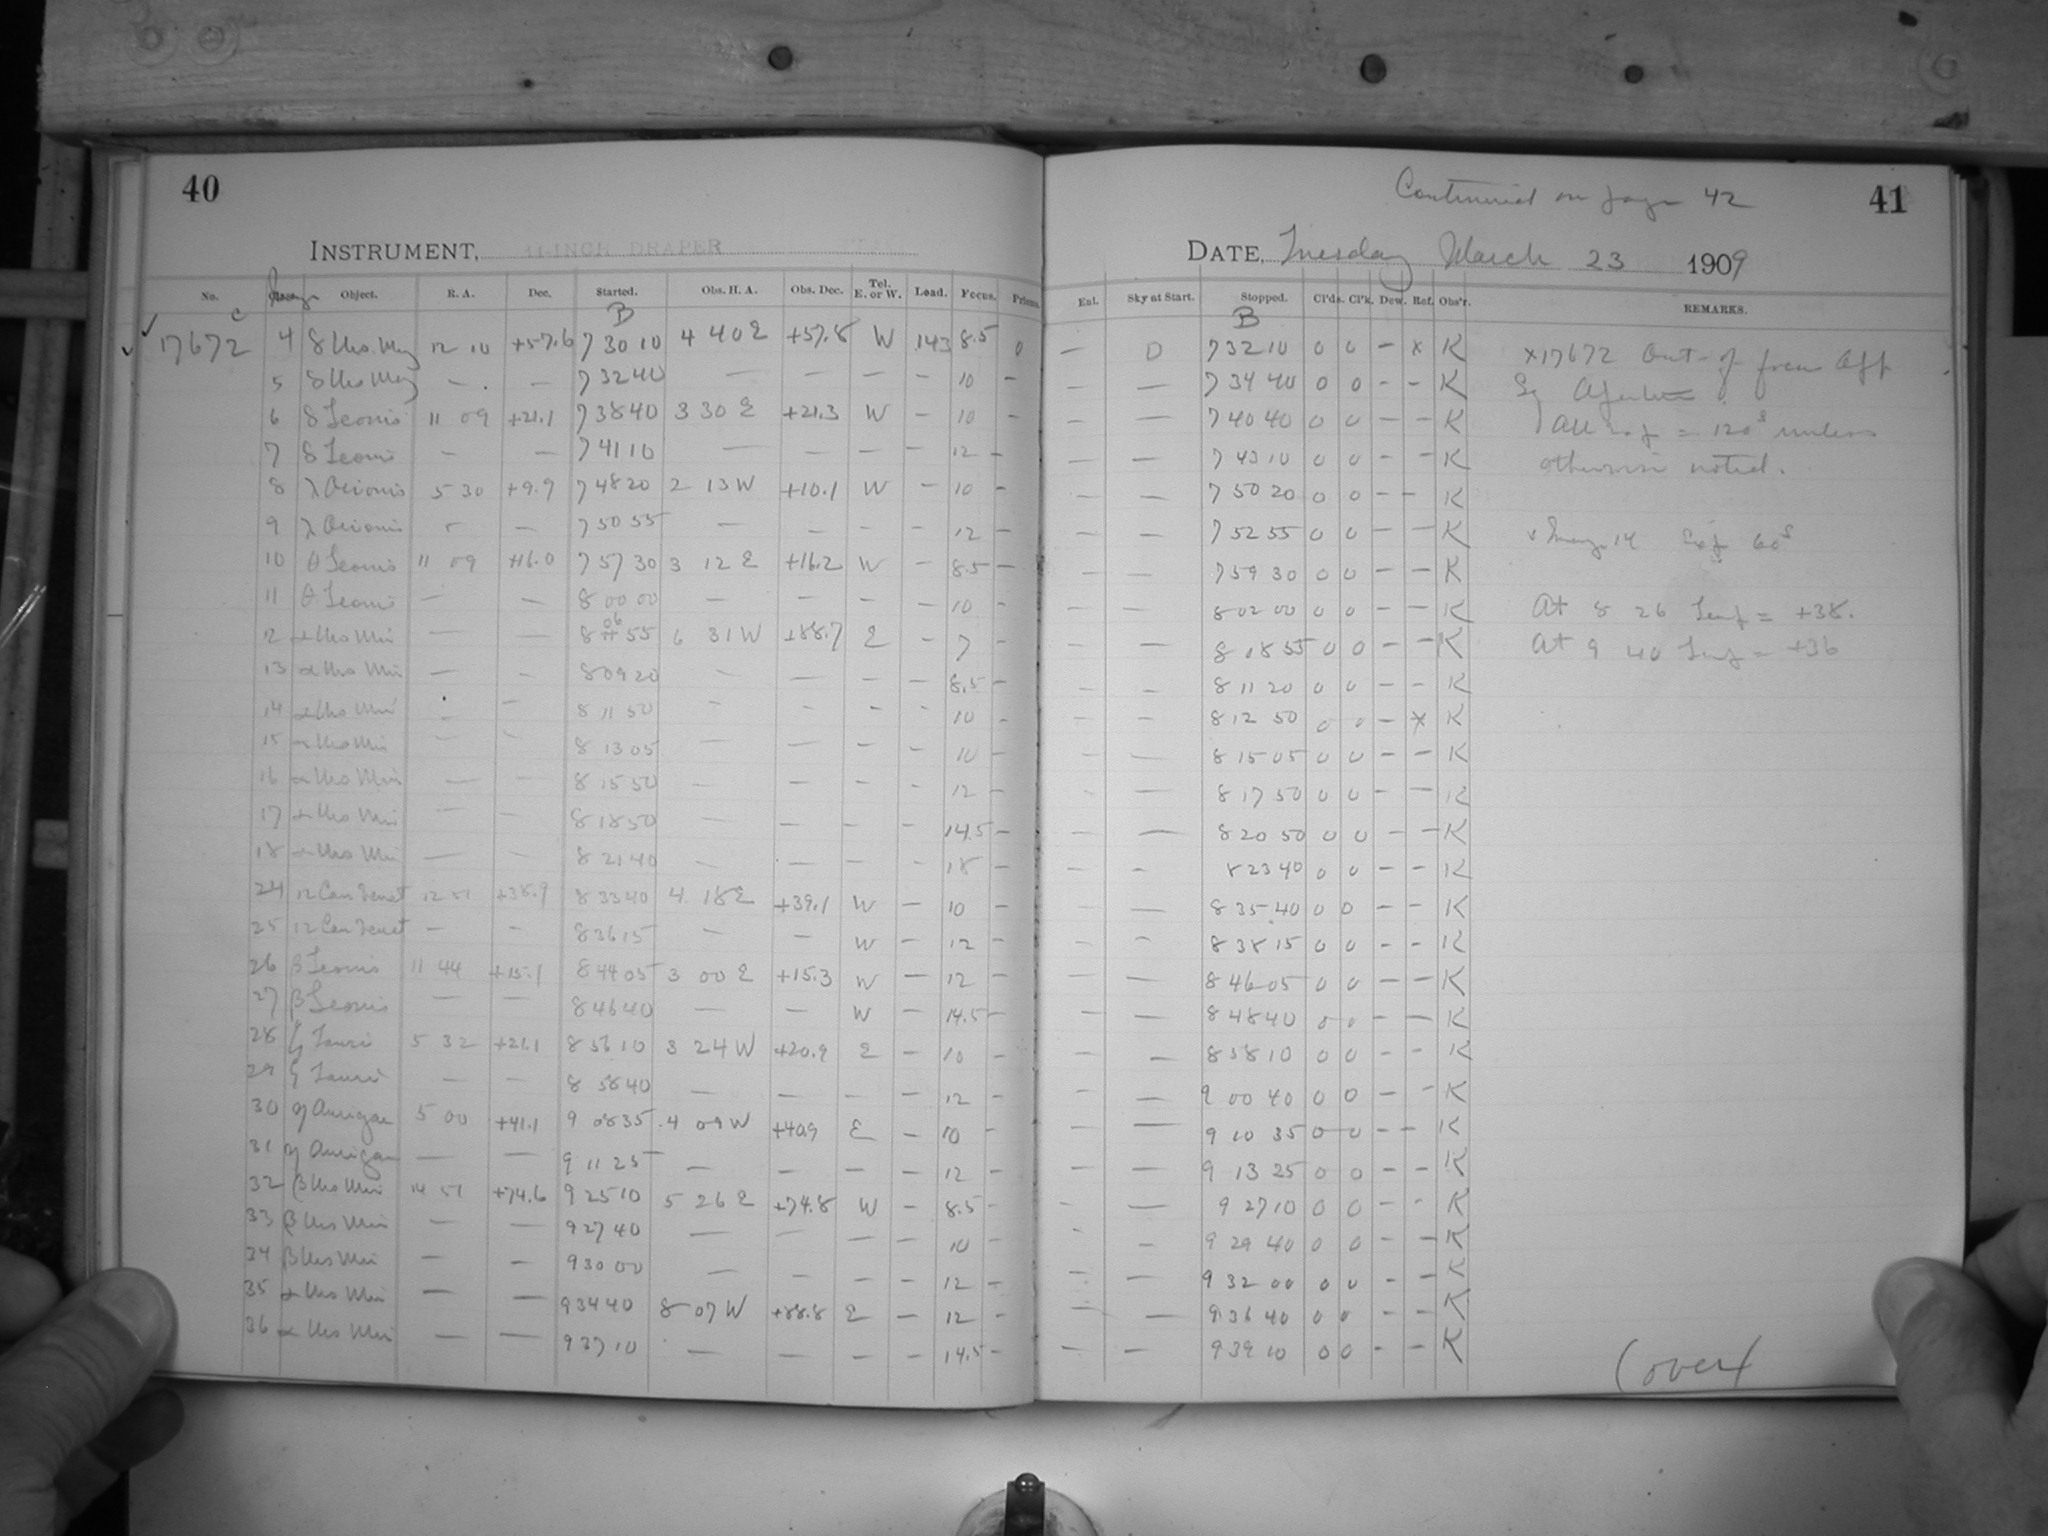 40
INSTRUMENT, 11-INCH DRAPER
No. Image Object. R. A. Dec. Started. Obs. H. A. Obs. Dec. Tel. E. or W. Load. Focus. Prisms.
B
17672 C 4 δ Urs. Maj 12 10 +57.6 7 30 10 4 40 E +57.8 W 143 8.5 0
5 δ Urs Maj — . — 7 32 40 — — — — 10 –
6 δ Leonis 11 09 +21.1 7 38 40 3 30 E +21.3 W – 10 –
7 δ Leonis – — 7 41 10 — — — — 12 –
8 λ Orionis 5 30 +9.9 7 48 20 2 13 W +10.1 W – 10 –
9 λ Orionis – — 7 50 55 — — — — 12 –
10 θ Leonis 11 09 +16.0 7 57 30 3 12 E +16.2 W – 8.5 –
11 θ Leonis — — 8 00 00 — — — — 10 –
12 α Urs Min — — 8 06 55 6 31 W +88.7 E – 7 –
13 α Urs Min — – 8 09 20 – — — — 8.5 –
14 α Urs Min – – 8 11 50 – – – – 10 –
15 α Urs Min – – 8 13 05 — — — – 10 –
16 α Urs Min — — 8 15 50 – – — – 12 –
17 α Urs Min — — 8 18 50 — – – – 14.5 –
18 α Urs Min — – 8 21 40 – — — – 18 –
24 12 Can Venat 12 51 +38.9 8 33 40 4 18 E +39.1 W – 10 –
25 12 Can Venat – – 8 36 15 – – W – 12 –
26 β Leonis 11 44 +15.1 8 44 05 3 00 E +15.3 W – 12 –
27 β Leonis — — 8 46 40 — – W – 14.5 –
28 ζ Tauri 5 32 +21.1 8 56 10 3 24 W +20.9 E – 10 –
29 ζ Tauri — — 8 58 40 — — — — 12 –
30 η Aurigae 5 00 +41.1 9 08 35 4 09 W +40.9 E – 10 –
31 η Aurigae — — 9 11 25 — — — — 12 –
32 β Urs Min 14 51 +74.6 9 25 10 5 26 E +74.8 W – 8.5 –
33 β Urs Min — — 9 27 40 — — — — 10 –
34 β Urs Min – – 9 30 00 — – – – 12 –
35 α Urs Min — — 9 34 40 8 07 W +88.8 E – 12 –
36 α Urs Min — — 9 37 10 — — – – 14.5 –
Continued on page 42
41
DATE, Tuesday March 23 1909
Enl. Sky at Start. Stopped. Cl'ds. Cl'k. Dew. Ref. Obs'r. REMARKS.
B
— D 7 32 10 0 0 – x K
— — 7 34 40 0 0 – – K
– — 7 40 40 0 0 – – K
– — 7 43 10 0 0 – – K
– — 7 50 20 0 0 – – K
– — 7 52 55 0 0 – – K
– — 7 59 30 0 0 – – K
– — 8 02 00 0 0 – – K
– — 8 18 55 0 0 – – K
– – 8 11 20 0 0 – – K
– – 8 12 50 0 0 – x K
– — 8 15 05 0 0 – – K
– — 8 17 50 0 0 – – K
– — 8 20 50 0 0 – – K
– – 8 23 40 0 0 – – K
– — 8 35 40 0 0 – – K
– – 8 38 15 0 0 – – K
— — 8 46 05 0 0 – – K
– — 8 48 40 0 0 – – K
– — 8 58 10 0 0 – – K
– — 9 00 40 0 0 – – K
– — 9 10 35 0 0 – – K
– — 9 13 25 0 0 – – K
– — 9 27 10 0 0 – – K
– – 9 29 40 0 0 – – K
– — 9 32 00 0 0 – – K
– — 9 36 40 0 0 – – K
– – 9 39 10 0 0 – – K
x17672 Out of focus
Aperture
All exp = 120s unless
otherwise noted.
Image 14 Exp 60s
At 8 26 Temp = +38.
At 9 40 Temp = +36
(over)